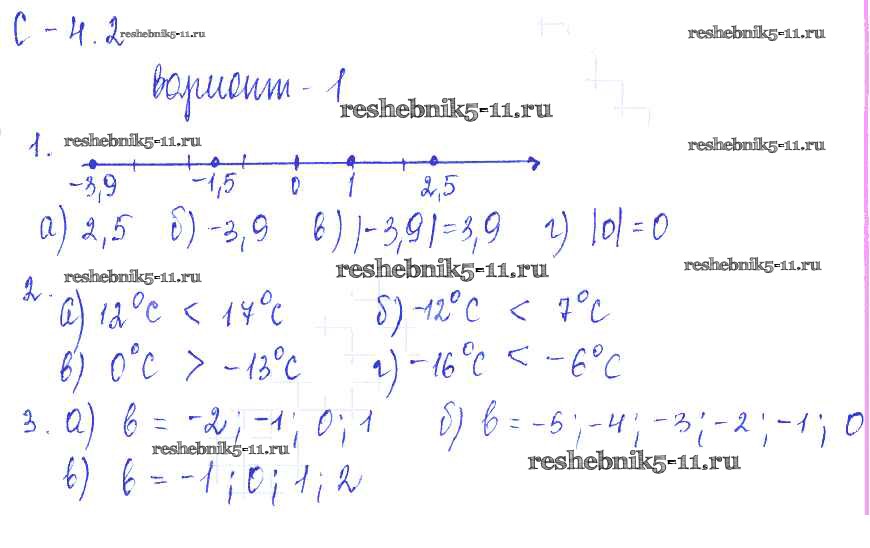 С - 4.2 reshebnik5-11.ru reshebnik5-11.ru
вариант - 1
reshebnik5-11.ru
1. reshebnik5-11.ru reshebnik5-11.ru
-3,9 -1,5 0 1 2,5
а) 2,5 б) -3,9 в) |-3,9|=3,9 г) |0|=0
reshebnik5-11.ru reshebnik5-11.ru reshebnik5-11.ru
2. а) 12°С < 17°С б) -12°С < 7°С
в) 0°С > -13°С г) -16°С < -6°С
3. а) в = -2; -1; 0; 1 б) в = -5; -4; -3; -2; -1; 0
reshebnik5-11.ru reshebnik5-11.ru
в) в = -1; 0; 1; 2